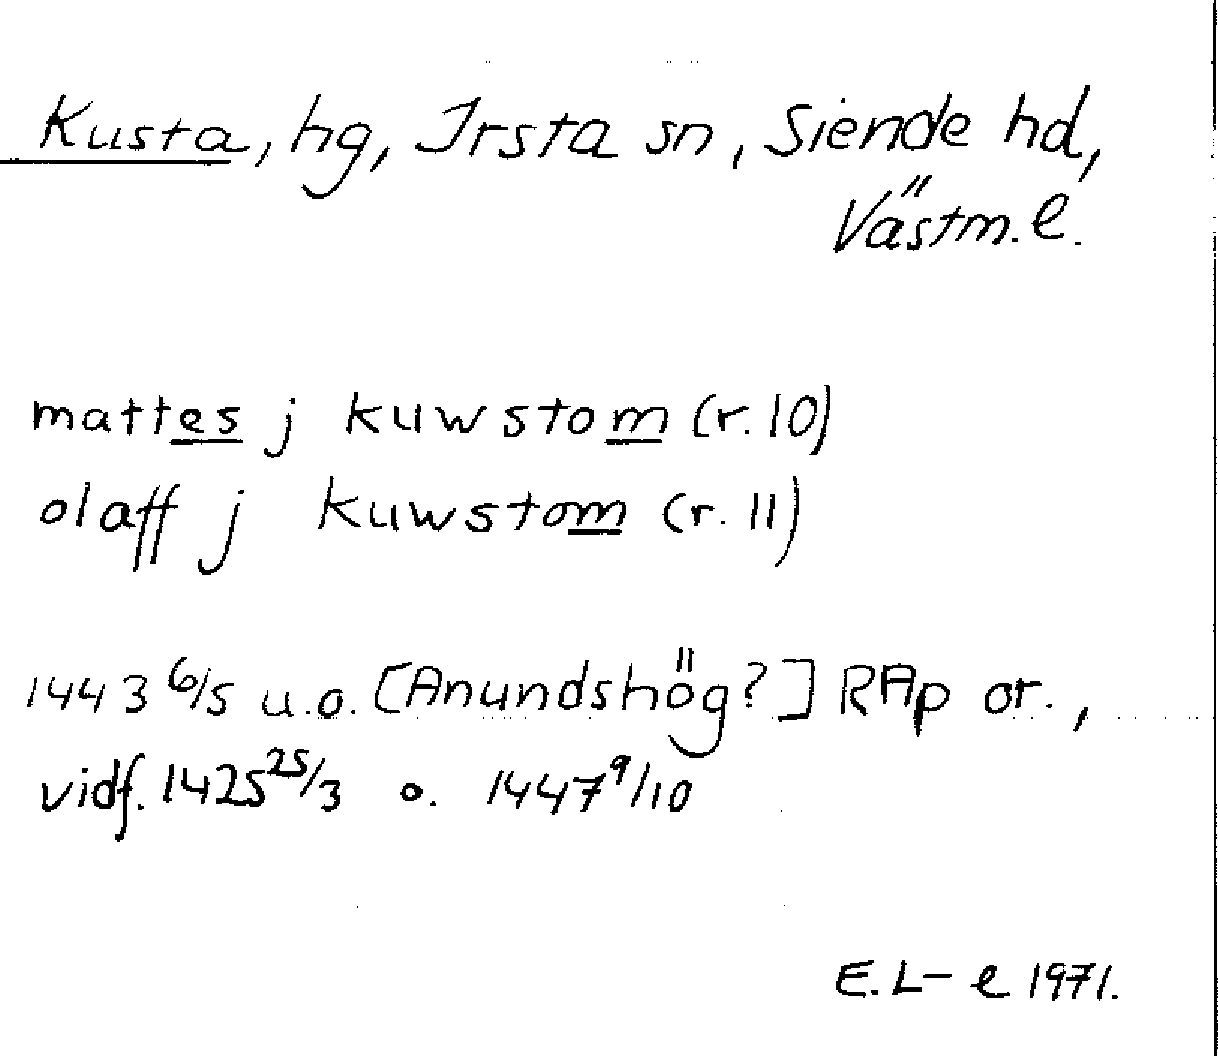 Kusta, hg, Irsta sn, Siende hd,
Västm. l.
mattes j kuwstom (r. 10)
olaff j kuwstom (r. 11)
1443 6/5 u.o. [Anundshög?] RAp or.,
vidf. 1425 25/3 o. 1447 9/10
E. L–e 1971.